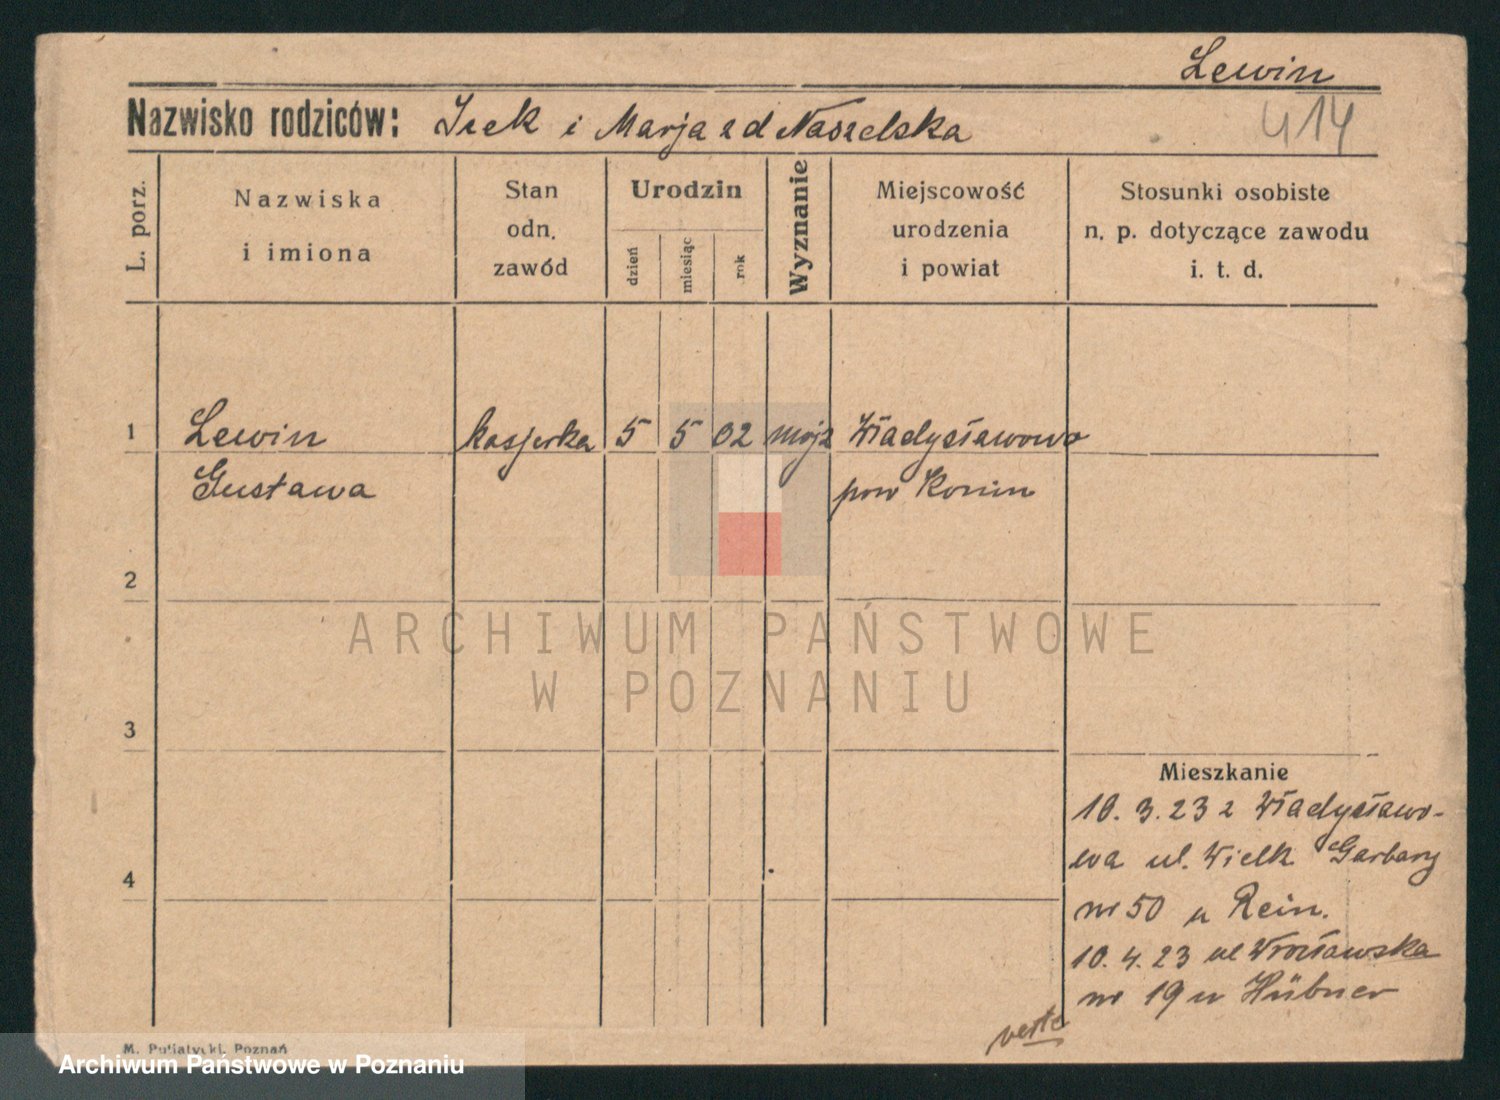 Lewin
Nazwisko rodziców: Icek i Marja zd Naszelska
414
L. porz.
Nazwiska
i imiona
Stan
odn.
zawód
Urodzin
dzień
miesiąc
rok
Wyznanie
Miejscowość
urodzenia
i powiat
Stosunki osobiste
n. p. dotyczące zawodu
i. t. d.
1 Lewin kasjerka 5 5 02 mojż Władysławowo
Gustawa pow Konin
2
ARCHIWUM PAŃSTWOWE
W POZNANIU
3
Mieszkanie
10. 3. 23 z Władysławo-
wa ul. Wielk Garbary
4
nr 50 u Rein.
10. 4. 23 ul Wrocławska
nr 19 u Hübner
verte
M. Putiatycki, Poznań
Archiwum Państwowe w Poznaniu